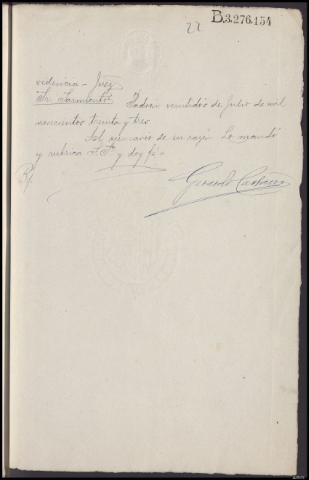 22
B.3.276.454
videncia - Juez
Sr. Sarmiento. Padrón veintidós de Julio de mil
novecientos treinta y tres.
Al sumario de su razón. Lo mandó
y rubrica S. Sª y doy fé.-
Gerardo